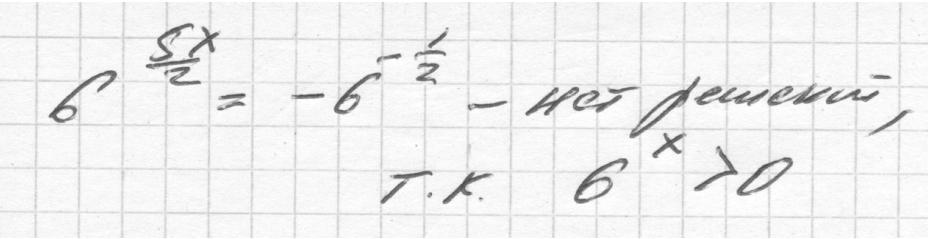 6^(5x/2) = -6^(-1/2) - нет решений,
т.к. 6^x > 0